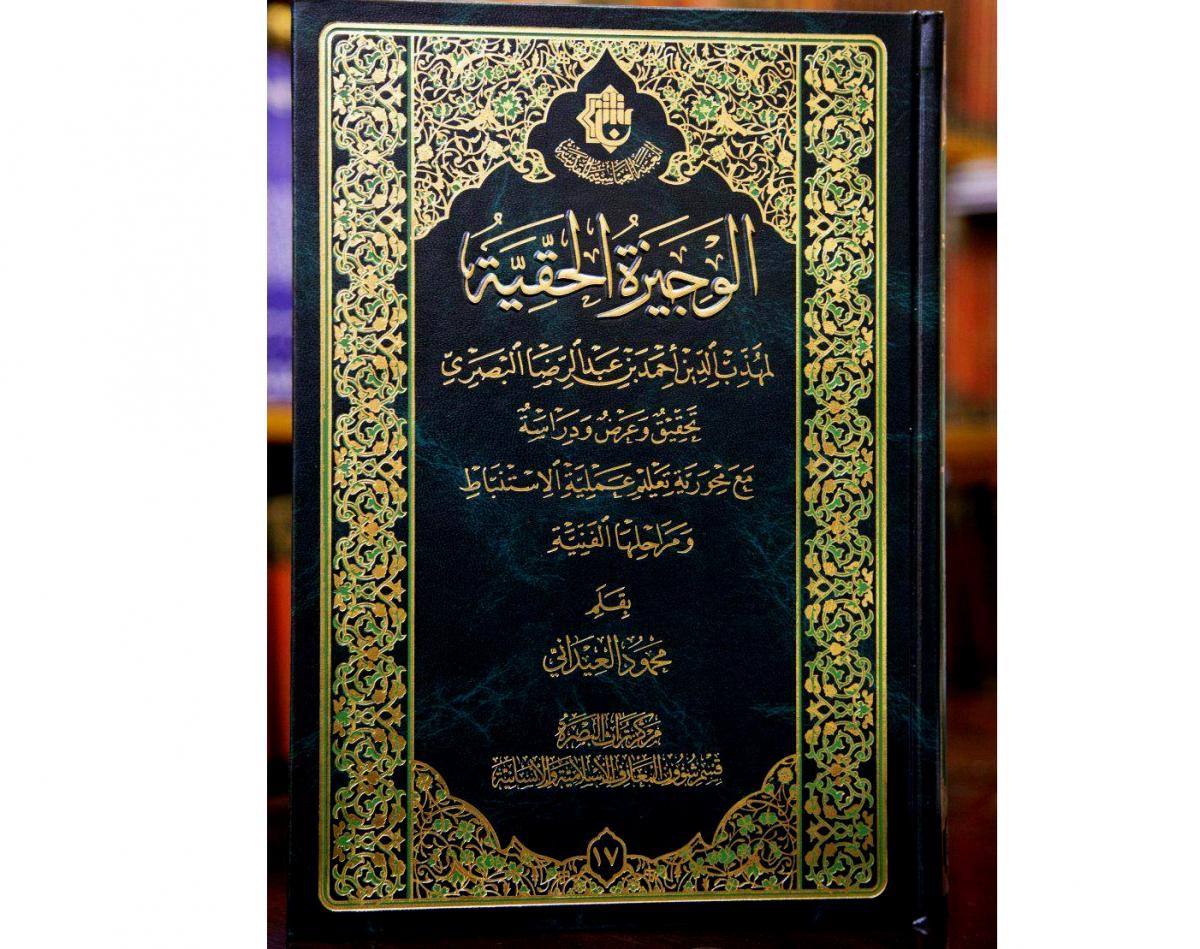 العتبة العباسية المقدسة
الوَجِيزَةُ الحَقِّيَّةُ
لمُهَذِّبِ الدِّينِ أَحْمَدَ بْنِ عَبْدِ الرِّضَا البَصْرِيِّ
تَحْقِيقٌ وَعَرْضٌ وَدِرَاسَةٌ
مَعَ مِحْوَرِيَّةِ تَعْلِيمِ عَمَلِيَّةِ الِاسْتِنْبَاطِ
وَمَرَاحِلِهَا الفَنِّيَّةِ
بِقَلَمِ
مَحْمُود العِيدَانِيّ
مركز تراث البصرة
قسم شؤون المعارف الإسلامية والإنسانية
١٧